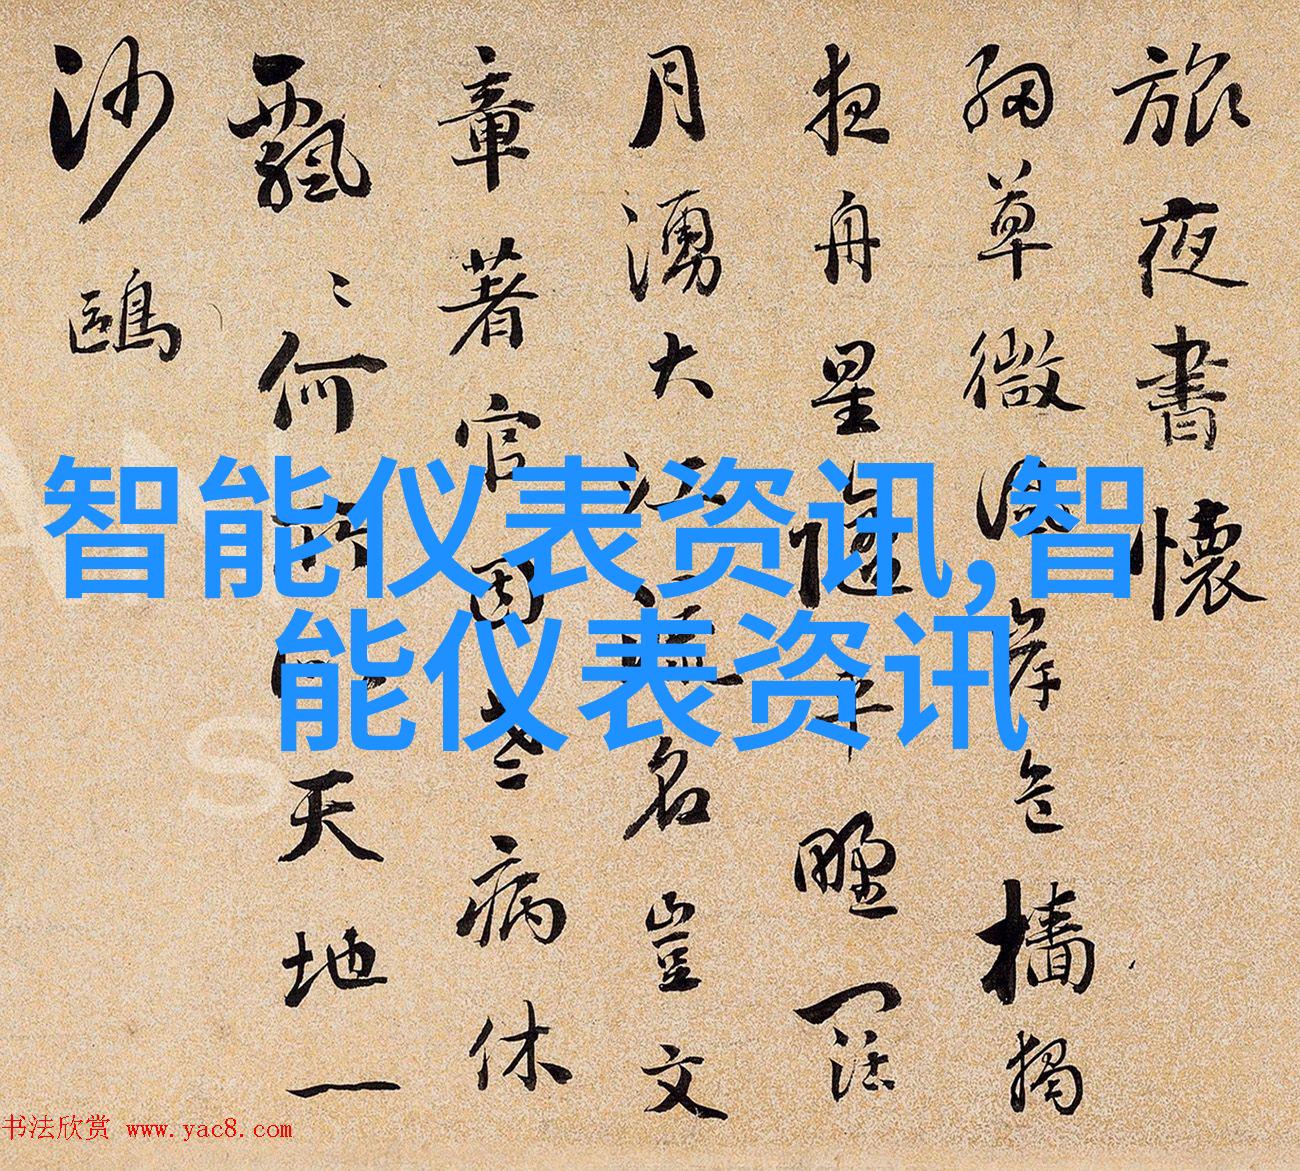 旅夜書懷
細草微岸危檣獨
夜舟星隨平野闊
月湧大江流名豈文
章著官因老病休
飄〻何所似天地一
沙鷗
智能仪表资讯,智
能仪表资讯
书法欣赏 www.yac8.com